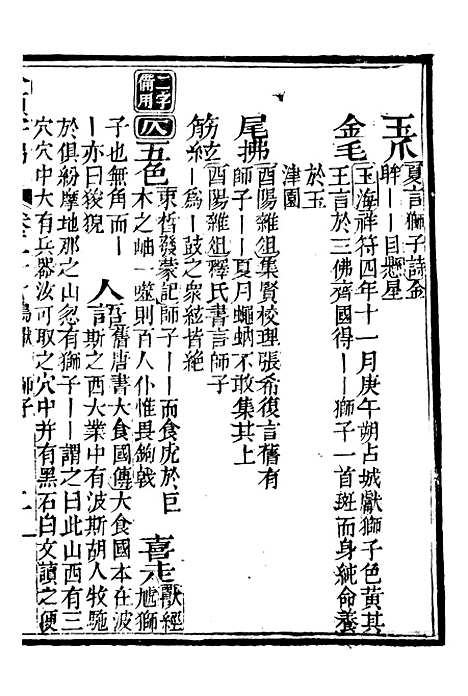 玉爪夏言獅子詩金
眸一一目懸星
金毛玉海祥符四年十一月庚午朔占城獻獅子色黃其
王言於三佛齊國得一一獅子一首斑而身純命養
於玉
津園
尾拂酉陽雜俎集賢校理張希復言舊有
師子一一夏月蠅蚋不敢集其上
筋絃酉陽雜俎釋氏書言師子
一爲一鼓之衆絃皆絶
二字備用
仄
五色束晳發蒙記師子一一而食虎於巨
木之岫一噬則百人仆惟畏鉤戟
喜走獸經
尵獅
子也無角而一
一亦曰狻猊
人言舊唐書大食國傳大食國本在波
斯之西大業中有波斯胡人牧駞
於俱紛摩地那之山忽有獅子一一謂之曰此山西有三
穴穴中大有兵器汝可取之穴中并有黑石白文讀之便
獅子